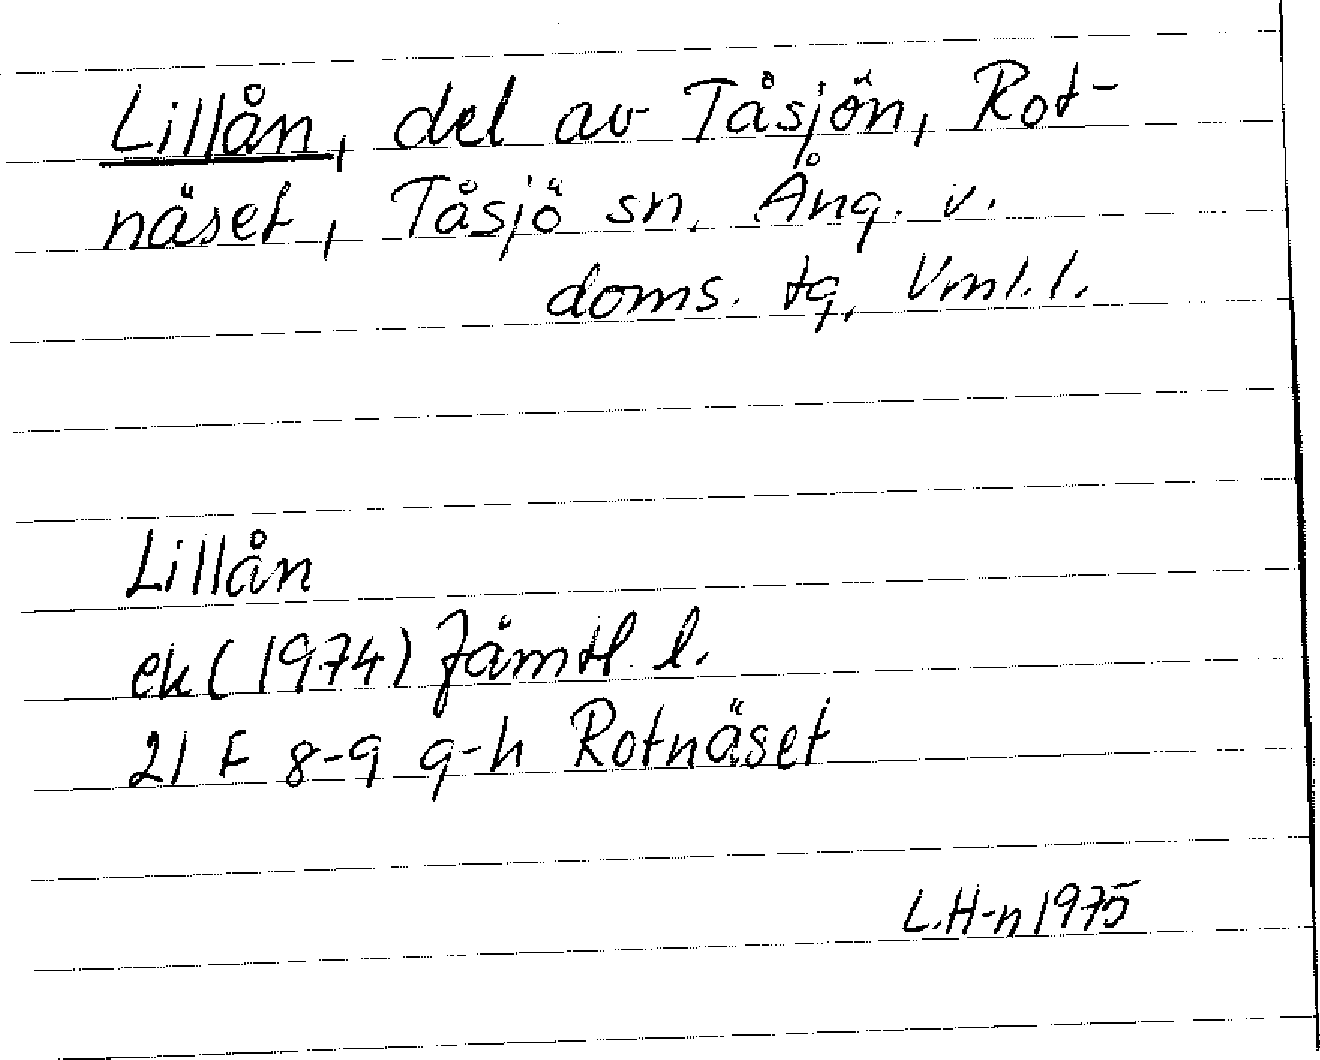 Lillån, del av Tåsjön, Rot-
näset, Tåsjö sn, Ång. v.
doms. tg, Vml. l.
Lillån
ek (1974) Jämtl. l.
21 F 8-9 g-h Rotnäset
L.H-n 1975